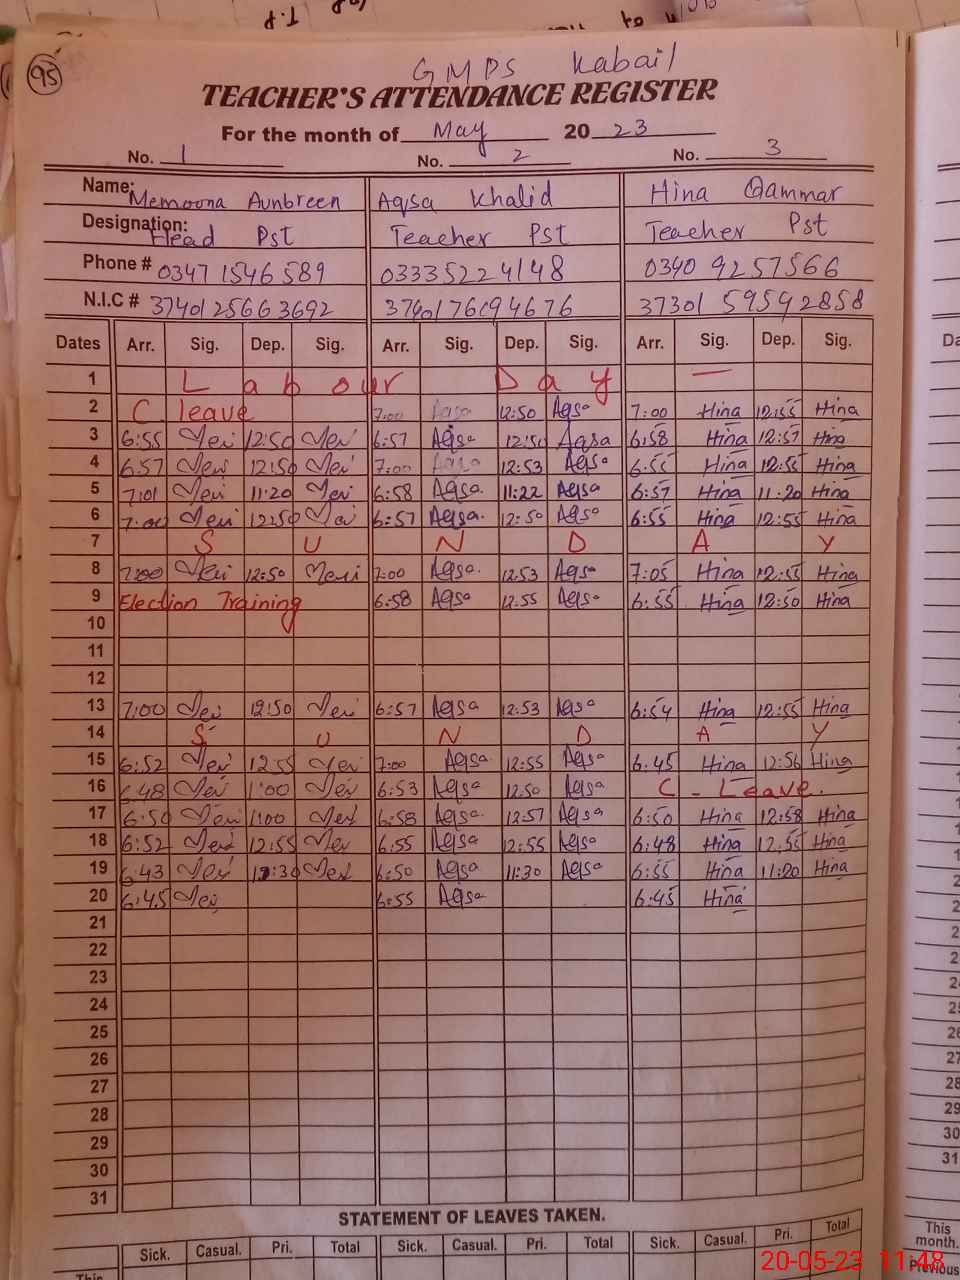 95
GMPS Kabail
TEACHER'S ATTENDANCE REGISTER
For the month of May 20 23
No. 1 No. 2 No. 3
Name: Memoona Aunbreen Aqsa Khalid Hina Qammar
Designation: Head Pst Teacher Pst Teacher Pst
Phone # 0347 1546 589 03335224148 0340 9257566
N.I.C # 3740125663692 3740176194676 37301 59592858
Dates Arr. Sig. Dep. Sig. Arr. Sig. Dep. Sig. Arr. Sig. Dep. Sig.
1 Labour Day —
2 C leave 7:00 Aqsa 12:50 Aqsa 7:00 Hina 12:55 Hina
3 6:55 12:50 6:57 Aqsa 12:50 Aqsa 6:58 Hina 12:57 Hina
4 6:57 12:50 7:00 Aqsa 12:53 Aqsa 6:55 Hina 12:55 Hina
5 7:01 11:20 6:58 Aqsa. 11:22 Aqsa 6:57 Hina 11:20 Hina
6 7:00 12:50 6:57 Aqsa. 12:50 Aqsa 6:55 Hina 12:55 Hina
7 S U N D A Y
8 7:00 12:50 7:00 Aqsa. 12:53 Aqsa 7:05 Hina 12:55 Hina
9 Election Training 6:58 Aqsa 12:55 Aqsa 6:55 Hina 12:50 Hina
10
11
12
13 7:00 12:50 6:57 Aqsa 12:53 Aqsa 6:54 Hina 12:55 Hina
14 S U N D A Y
15 6:52 12:55 7:00 Aqsa 12:55 Aqsa 6:45 Hina 12:56 Hina
16 6:48 1:00 6:53 Aqsa 12:50 Aqsa C - Leave.
17 6:50 1:00 6:58 Aqsa. 12:57 Aqsa 6:50 Hina 12:58 Hina
18 6:52 12:55 6:55 Aqsa 12:55 Aqsa 6:48 Hina 12:55 Hina
19 6:43 6:50 Aqsa 11:30 Aqsa 6:55 Hina 11:20 Hina
20 6:45 6:55 Aqsa 6:45 Hina
21
22
23
24
25
26
27
28
29
30
31
STATEMENT OF LEAVES TAKEN.
Sick. Casual. Pri. Total Sick. Casual. Pri. Total Sick. Casual. Pri. Total
This
This month.
Previous
20-05-23 11:48